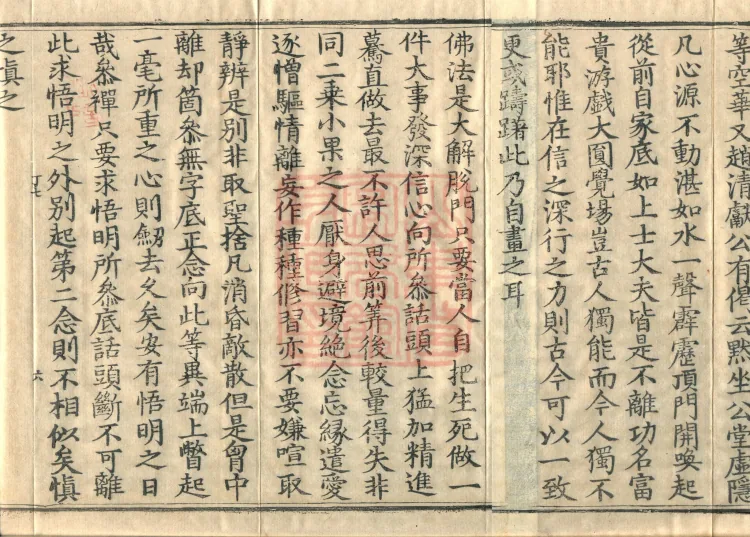 等空華又趙清獻公有偈云默坐公堂虛隱
凡心源不動湛如水一聲霹靂頂門開喚起
從前自家底如上士大夫皆是不離功名富
貴游戲大圓覺場豈古人獨能而今人獨不
能耶惟在信之深行之力則古今可以一致
更或躊躇此乃自畫之耳
佛法是大解脫門只要當人自把生死做一
件大事發深信心向所叅話頭上猛加精進
驀直做去最不許人思前筭後較量得失非
同二乗小果之人厭身避境絶念忘緣遣愛
逐憎驅情離妄作種種修習亦不要嫌喧取
靜辨是別非取聖捨凡消昏敵散但是胷中
離却箇叅無字底正念向此等異端上瞥起
一毫所重之心則勦去久矣安有悟明之日
哉叅禪只要求悟明所叅底話頭斷不可離
此求悟明之外別起第二念則不相似矣慎
之慎之
六